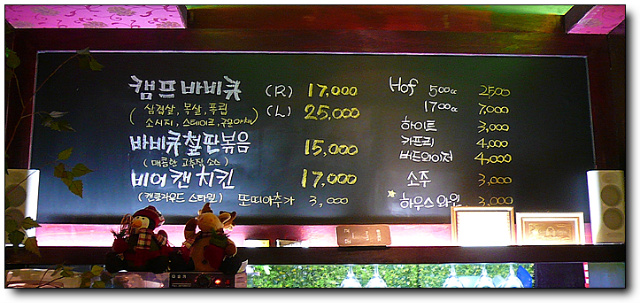 캠프 바비큐 (R) 17,000
(삼겹살, 목살, 폭립 (L) 25,000
소시지, 스테이크,
바비큐철판볶음 15,000
(매콤한 고추장 소스)
비어 캔 치킨 17,000
또띠아추가 3,000
Hof 500cc 2500
1700cc 7,000
하이트 3,000
카프리 4,000
버드와이저 4,000
소주 3,000
하우스와인 3,000